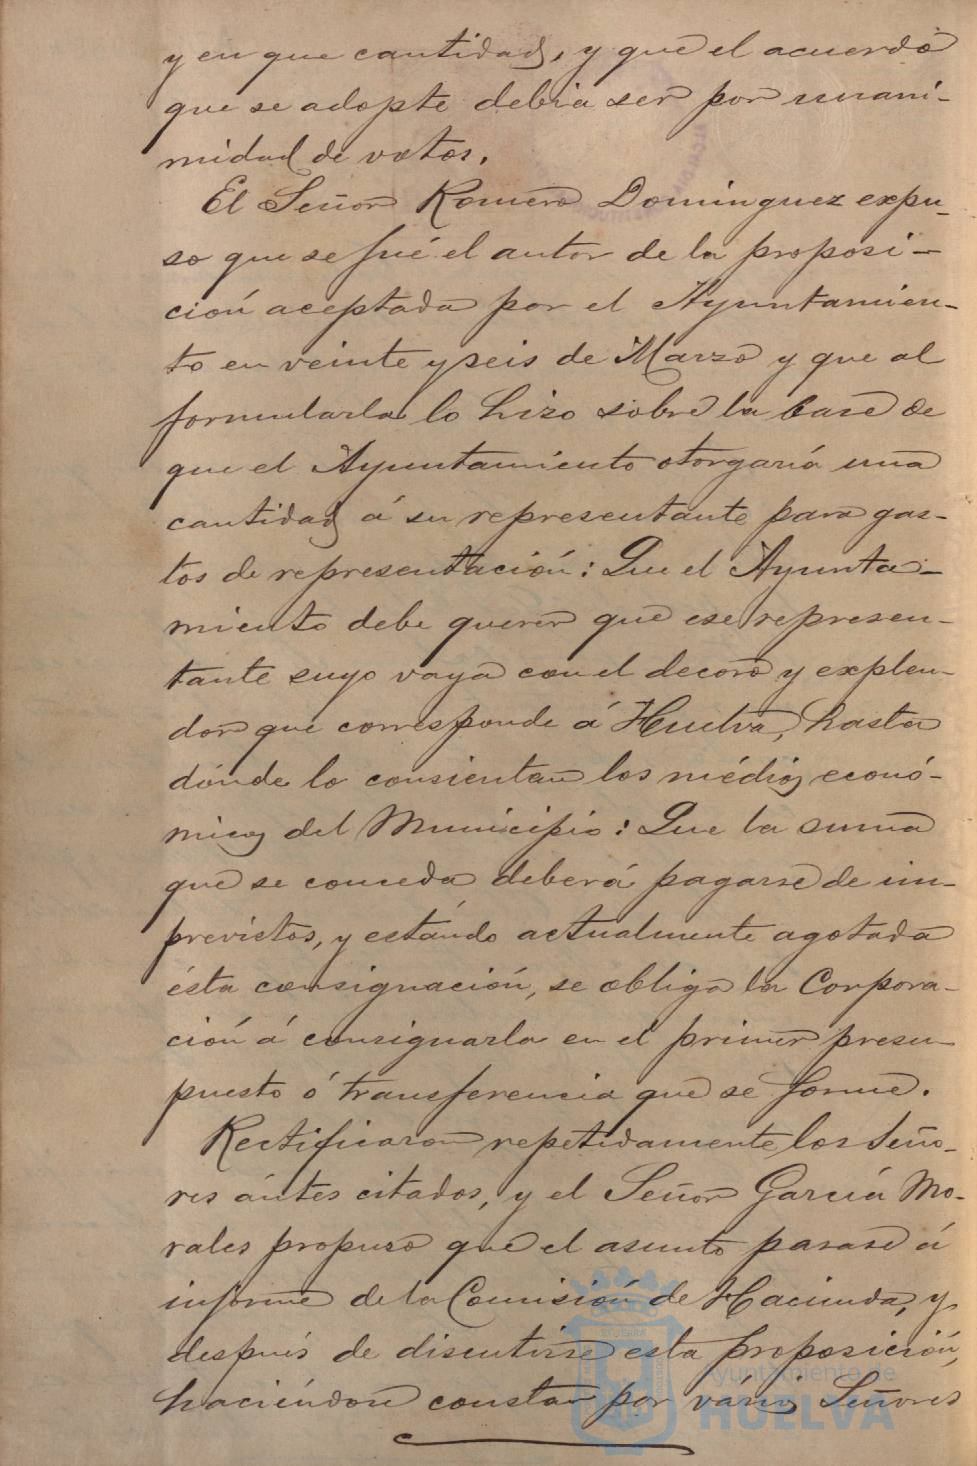 y en que cantidad, y que el acuerdo
que se adopte debia ser por unani-
midad de votos.
El Señor Romero Dominguez expu-
so que se fué el autor de la proposi-
ción aceptada por el Ayuntamien-
to en veinte y seis de Marzo y que al
formularla lo hizo sobre la base de
que el Ayuntamiento otorgaría una
cantidad á su representante para gas-
tos de representación: Que el Ayunta-
miento debe querer que ese represen-
tante suyo vaya con el decoro y explen-
dor que corresponde á Huelva, hasta
dónde lo consientan los médios econó-
micos del Municipio: Que la suma
que se conceda deberá pagarse de im-
previstos, y estándo actualmente agotada
ésta consignación, se obliga la Corpora-
ción á consignarla en el primer presu-
puesto ó transferencia que se forme.
Rectificaron repetidamente los Seño-
res ántes citados, y el Señor García Mo-
rales propuso que el asunto pasase á
informe de la Comisión de Hacienda, y
después de discutirse esta proposición,
haciéndose constar por vários Señores
Ayuntamiento de
HUELVA